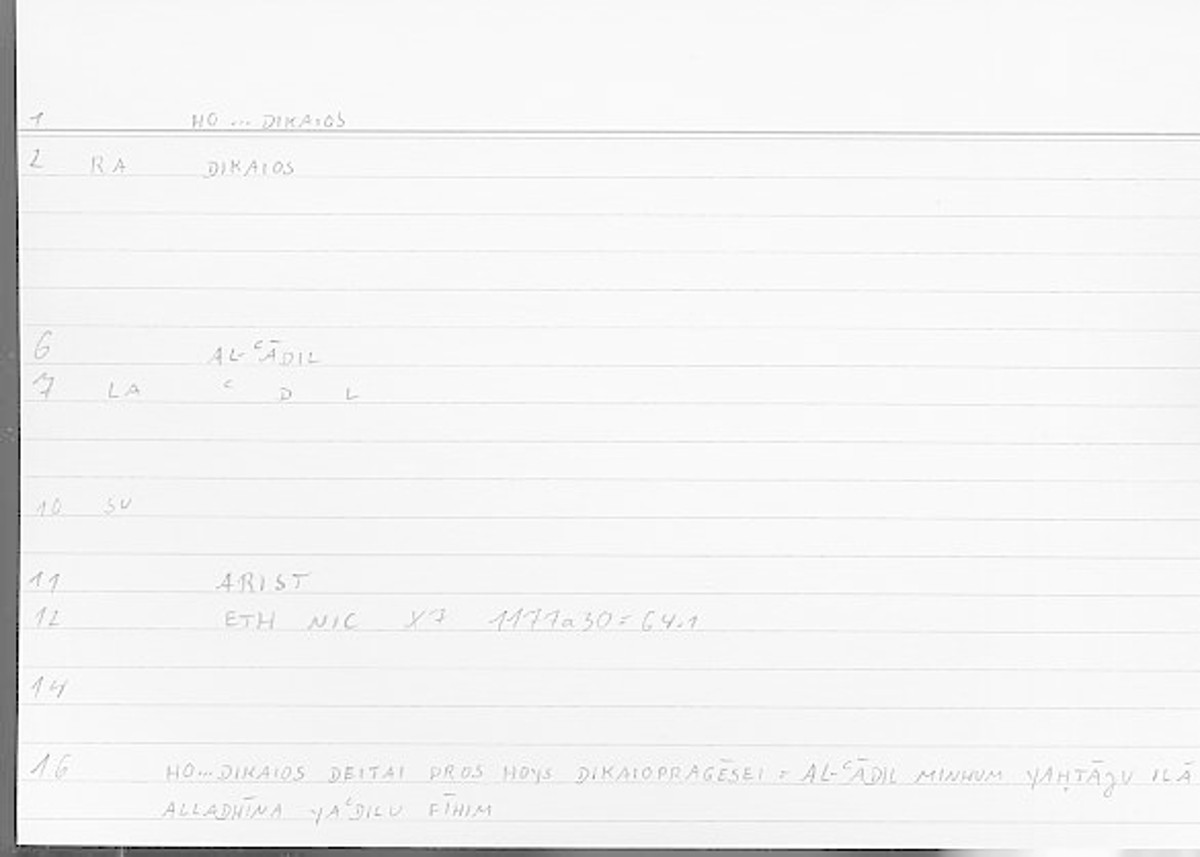 1 HO ... DIKAIOS
2 RA DIKAIOS
6 AL-ʿĀDIL
7 LA ʿ D L
10 SU
11 ARIST
12 ETH NIC X7 1177a30 = 64.1
14
16 HO...DIKAIOS DEITAI PROS HOYS DIKAIOPRAGĒSEI = AL-ʿĀDIL MINHUM YAḤTĀǧU ILĀ
ALLADHĪNA YAʿDILU FĪHIM